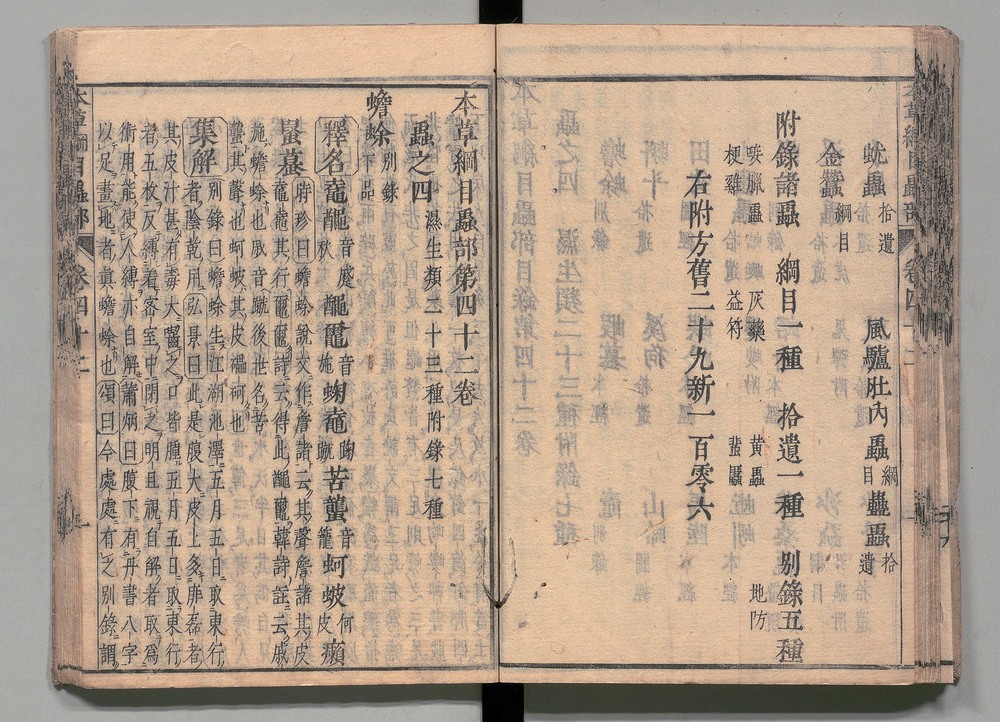 蚘蟲拾遺 風驢肚內蟲綱目 蠱蟲拾遺
金蠶綱目
附錄諸蟲 綱目一種 拾遺一種 別錄五種
唼臘蟲 灰藥 黃蟲 地防
梗雞 益符 蜚厲
右附方舊二十九新一百零六
本草綱目蟲部第四十二卷
蟲之四 濕生類二十三種附錄七種
蟾蜍別錄下品
釋名 𪓰𪓿音蹙秋 𪓬𪓿音施 蝍𪓰 苦蠪音籠 蚵蚾何皮 癩
蝦蟇 時珍曰蟾蜍說文作詹諸云其聲詹諸其皮
𪓰𪓰其行𪓿𪓿詩云得此𪓬𪓿韓詩註云戚
施蟾蜍也後世名苦
蠪其聲也蚵蚾其皮礧砢也
集解 別錄曰蟾蜍生江湖池澤五月五日取東行
者陰乾用弘景曰此是腹大皮上多痱磊者
其皮汁甚有毒犬嚙之口皆腫五月五日取東行
者五枚反縛着密室中閉之明旦視自解者取爲
術用能使人縛亦自解蕭炳曰腹下有丹書八字
以足畫地者眞蟾蜍也頌曰今處處有之別錄謂
本草綱目蟲部 卷四十二